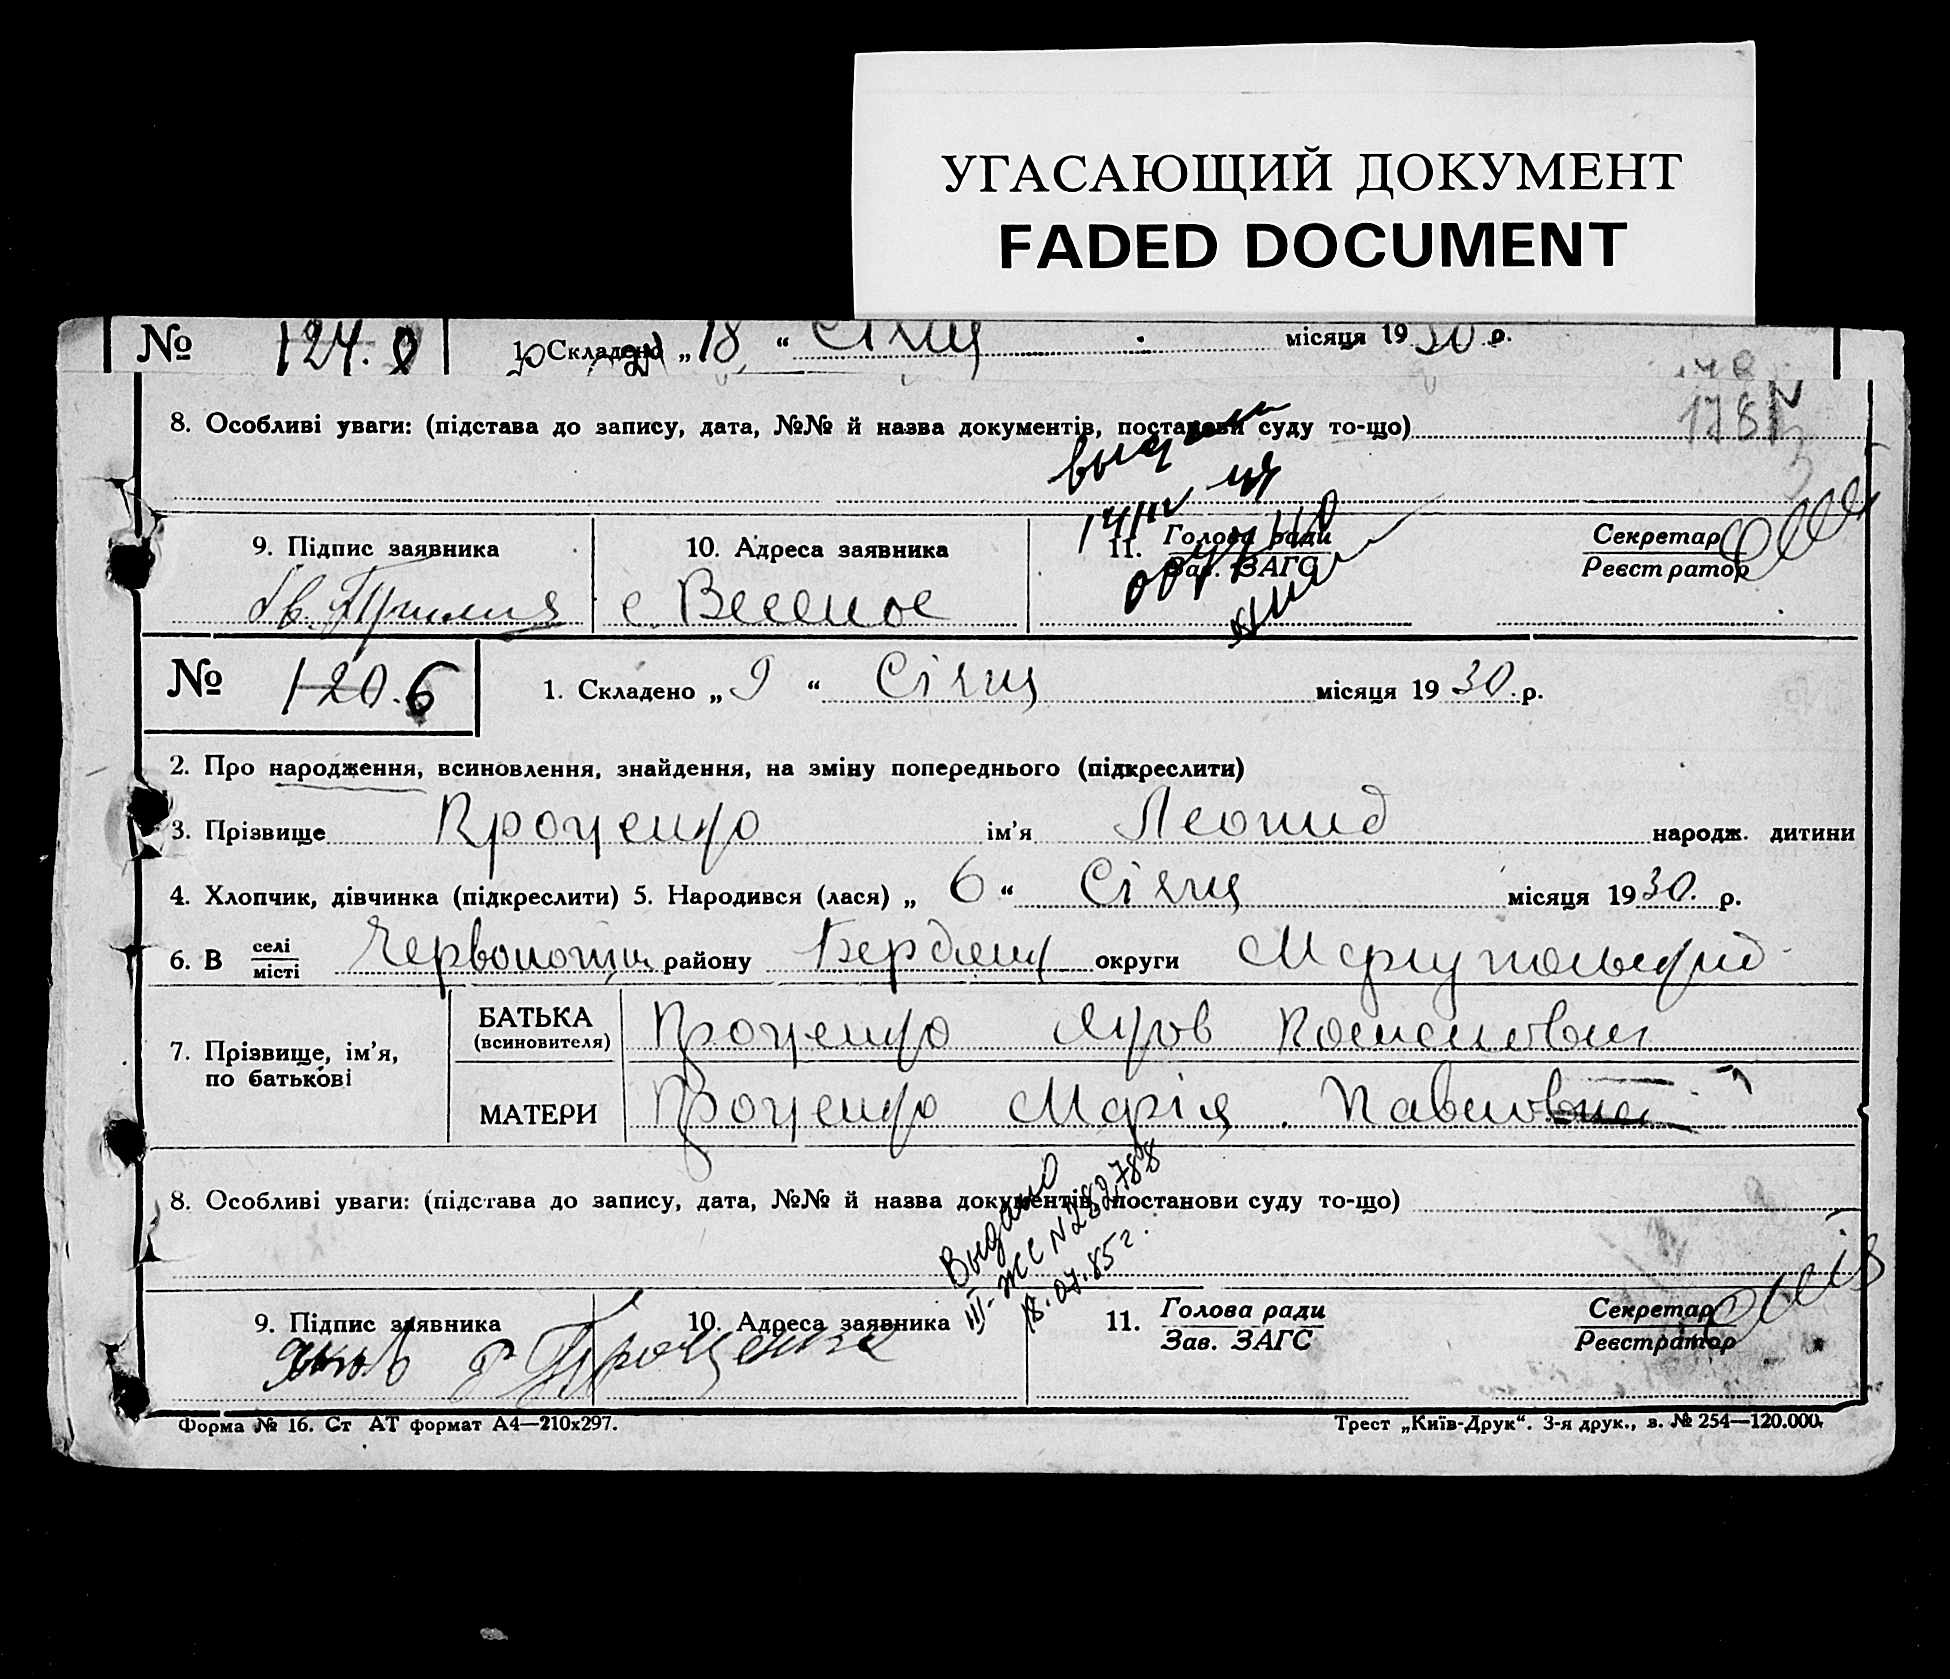 УГАСАЮЩИЙ ДОКУМЕНТ
FADED DOCUMENT
№ 124. 1. Складено „ 18 “ Січня місяця 1930 р.
178
8. Особливі уваги: (підстава до запису, дата, №№ й назва документів, постанови суду то-що)
9. Підпис заявника 10. Адреса заявника 11. Голова ради Секретар
Зав. ЗАГС Реєстратор
с. Веселое
№ 120. 6 1. Складено „ 9 “ Січня місяця 1930. р.
2. Про народження, всиновлення, знайдення, на зміну попереднього (підкреслити)
3. Прізвище Проценко ім’я Леонид народж. дитини
4. Хлопчик, дівчинка (підкреслити) 5. Народився (лася) „ 6 “ Січня місяця 1930. р.
6. В селі району Бердянск округи
місті
7. Прізвище, ім’я,
по батькові
БАТЬКА Проценко Яков
(всиновителя)
МАТЕРИ Проценко Марія
8. Особливі уваги: (підстава до запису, дата, №№ й назва документів, постанови суду то-що)
Выдано
III-ЖС N282788
18.07.85г.
9. Підпис заявника 10. Адреса заявника 11. Голова ради Секретар
Зав. ЗАГС Реєстратор
Яков Проценко
Форма № 16. Ст АТ формат А4—210х297. Трест „Київ-Друк“. 3-я друк., з. № 254—120.000.